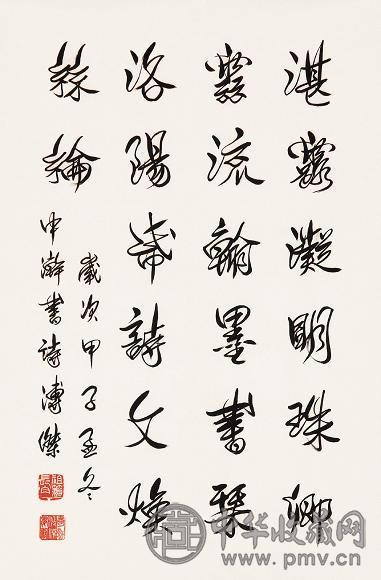 湛露凝明珠卿
雲流翰墨書
洛陽帋詩文燦
絲綸
歲次甲子孟冬
中澣書詩溥傑
中华收藏网
www.pmv.cn